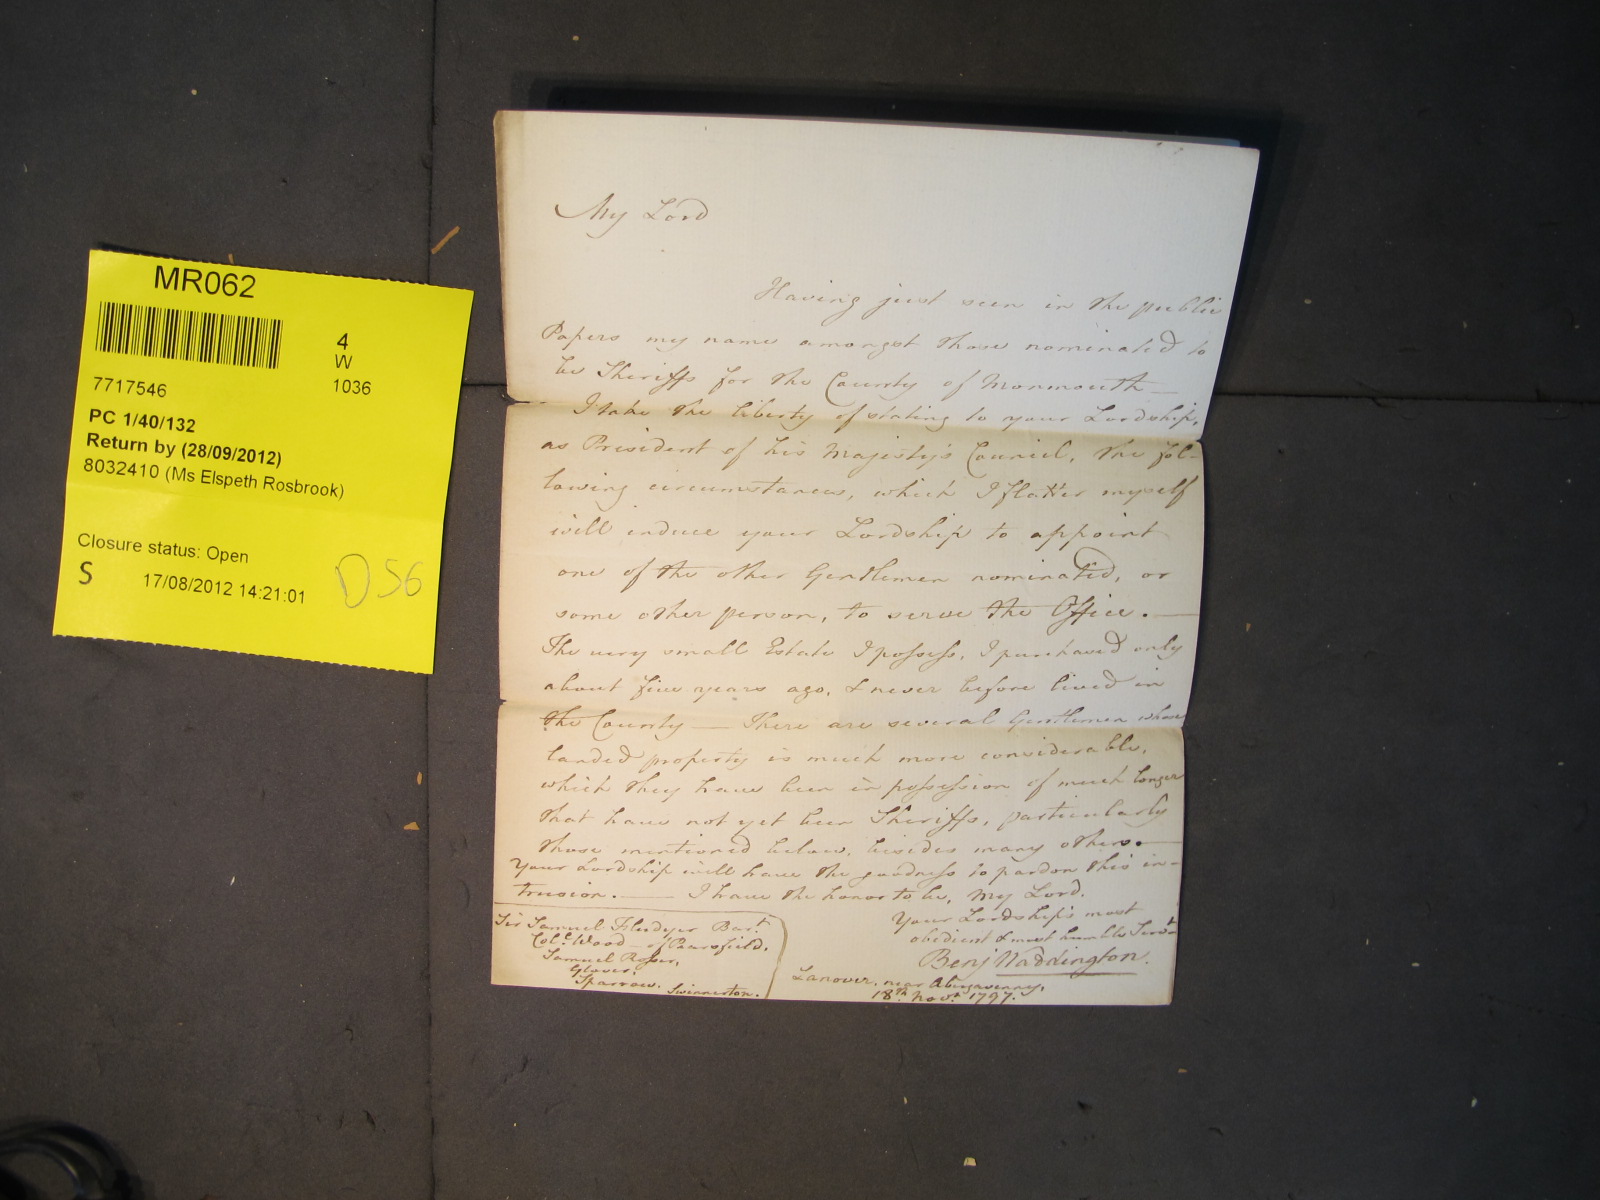 MR062
4
W
7717546
1036
PC 1/40/132
Return by (28/09/2012)
8032410 (Ms Elspeth Rosbrook)
Closure status: Open
S 17/08/2012 14:21:01
D56
My Lord
Having just seen in the public
Papers my name amongst those nominated to
be Sheriffs for the County of Monmouth —
I take the liberty of stating to your Lordship,
as President of his Majesty's Council, the fol-
lowing circumstances, which I flatter myself
will induce your Lordship to appoint
one of the other Gentlemen nominated, or
some other person, to serve the Office. —
The very small Estate I possess, I purchased only
about five years ago, & never before lived in
the County — There are several Gentlemen whose
landed property is much more considerable,
which they have been in possession of much longer
that have not yet been Sheriffs, particularly
those mentioned below, besides many others. —
Your Lordship will have the goodness to pardon this in-
trusion. — I have the honor to be, My Lord,
Your Lordship's most
obedient & most humble Servt
Benj Waddington.
Lanover, near Abergavenny,
18th Novr 1797.
Sir Samuel Fludyer Bart
Coll Wood — of Pearsfield,
Samuel
Glover,
Sparrow. Swinnerton.